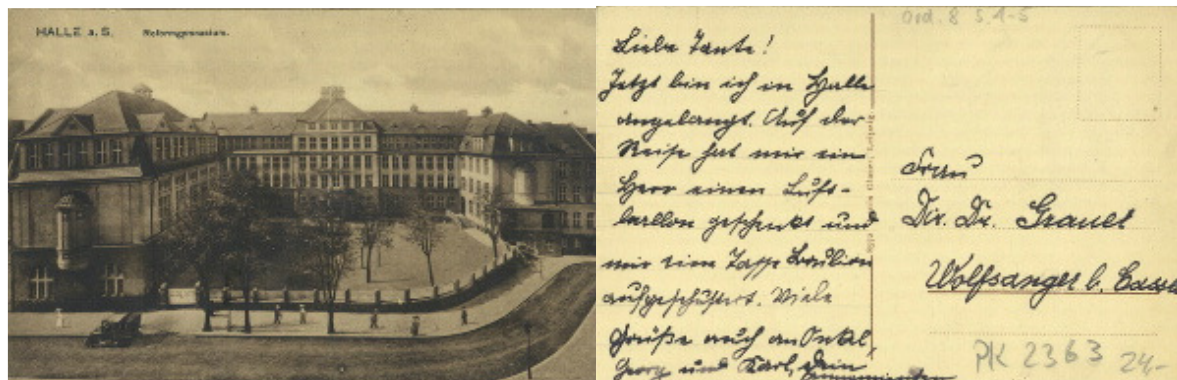 HALLE a. S. Reformgymnasium.
Ord. 8 S. 1-5
Liebe Tante!
Jetzt bin ich in Halle
angelangt. Auf der
Reise hat mir ein
Herr einen Luft-
ballon geschenkt und
mir eine Tasse Bouillon
aufgeschustert. Viele
Grüße auch an Onkel
Georg und Karl, Dein
Frau
Dir. Dr. Grauel
Wolfsanger b. Cassel
PK 2363 24,-